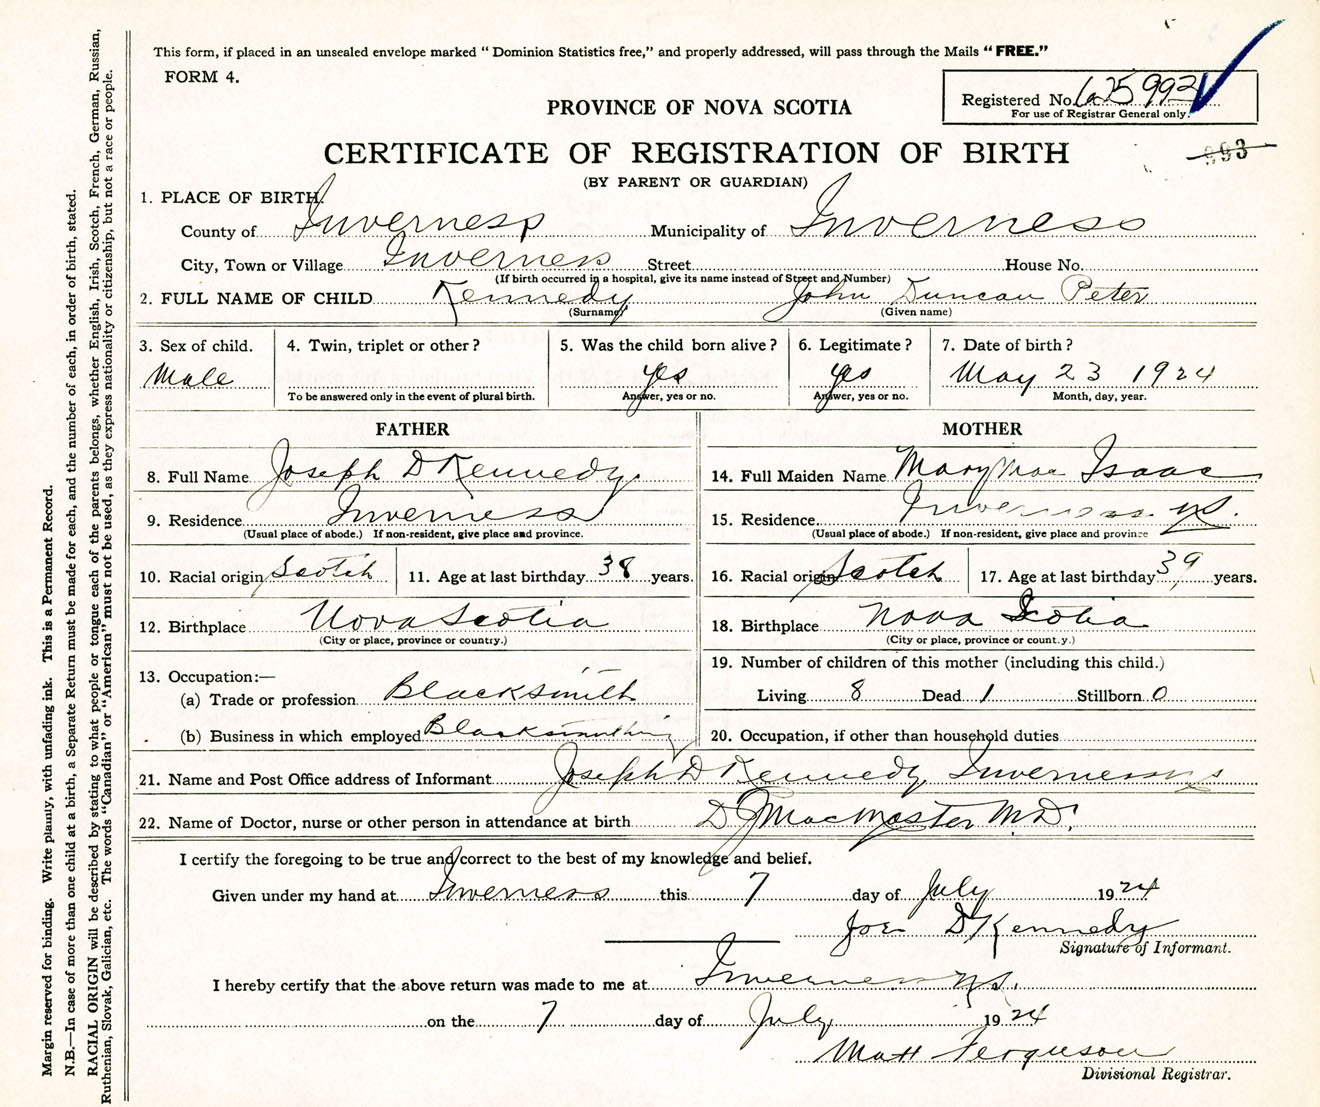 This form, if placed in an unsealed envelope marked "Dominion Statistics free," and properly addressed, will pass through the Mails "FREE."
FORM 4.
Registered No. 625992
For use of Registrar General only.
PROVINCE OF NOVA SCOTIA
CERTIFICATE OF REGISTRATION OF BIRTH
993
(BY PARENT OR GUARDIAN)
1. PLACE OF BIRTH.
County of Inverness Municipality of Inverness
City, Town or Village Inverness Street House No.
(If birth occurred in a hospital, give its name instead of Street and Number)
2. FULL NAME OF CHILD Kennedy John Duncan Peter
(Surname) (Given name)
3. Sex of child. 4. Twin, triplet or other? 5. Was the child born alive? 6. Legitimate? 7. Date of birth?
Male yes yes May 23 1924
To be answered only in the event of plural birth. Answer, yes or no. Answer, yes or no. Month, day, year.
FATHER MOTHER
8. Full Name Joseph D Kennedy 14. Full Maiden Name Mary Mac Isaac
9. Residence Inverness 15. Residence Inverness N.S.
(Usual place of abode.) If non-resident, give place and province. (Usual place of abode.) If non-resident, give place and province
10. Racial origin Scotch 11. Age at last birthday 38 years. 16. Racial origin Scotch 17. Age at last birthday 39 years.
12. Birthplace Nova Scotia 18. Birthplace Nova Scotia
(City or place, province or country.) (City or place, province or country.)
13. Occupation:— 19. Number of children of this mother (including this child.)
(a) Trade or profession Blacksmith Living 8 Dead 1 Stillborn 0
(b) Business in which employed Blacksmithing 20. Occupation, if other than household duties
21. Name and Post Office address of Informant Joseph D Kennedy Inverness N.S
22. Name of Doctor, nurse or other person in attendance at birth D J MacMaster M.D.
I certify the foregoing to be true and correct to the best of my knowledge and belief.
Given under my hand at Inverness this 7 day of July 1924
Joe D Kennedy
Signature of Informant.
I hereby certify that the above return was made to me at Inverness N.S.
on the 7 day of July 1924
Matt Ferguson
Divisional Registrar.
Margin reserved for binding. Write plainly, with unfading ink. This is a Permanent Record.
N.B.—In case of more than one child at a birth, a Separate Return must be made for each, and the number of each, in order of birth, stated.
RACIAL ORIGIN will be described by stating to what people or tongue each of the parents belongs, whether English, Irish, Scotch, French, German, Russian,
Ruthenian, Slovak, Galician, etc. The words "Canadian" or "American" must not be used, as they express nationality or citizenship, but not a race or people.